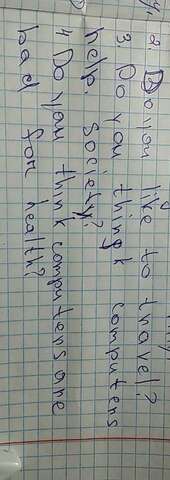 2. Do you like to travel?
3. Do you think computers
help society?
4. Do you think computers are
bad for health?